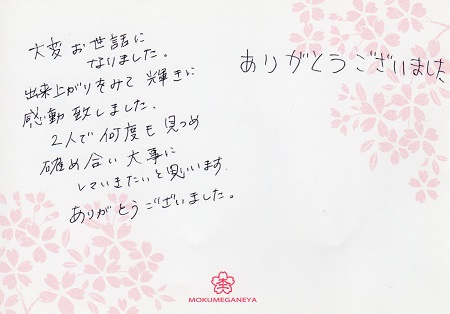 大変お世話に
なりました。
出来上がりをみて輝きに
感動致しました。
2人で何度も見つめ
確め合い大事に
していきたいと思います。
ありがとうございました。
ありがとうございました
MOKUMEGANEYA